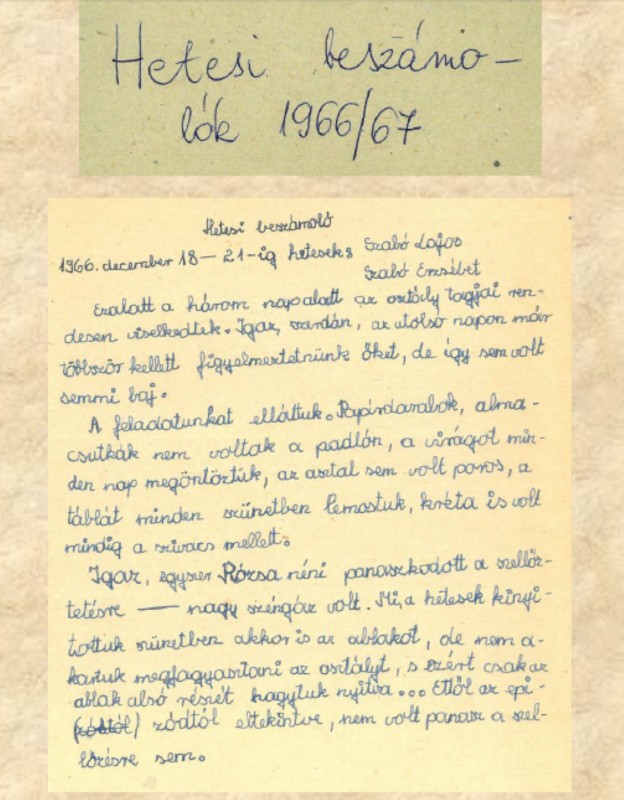 Hetesi beszámo-
lók 1966/67
Hetesi beszámoló
1966. december 18 — 21-ig hetesek: Szabó Lajos
Szabó Erzsébet
Ezalatt a három nap alatt az osztály tagjai ren-
desen viselkedtek. Igaz, szerdán, az utolsó napon már
többször kellett figyelmeztetnünk őket, de így sem volt
semmi baj.
A feladatunkat elláttuk. Papírdarabok, alma-
csutkák nem voltak a padlón, a virágot min-
den nap megöntöztük, az asztal sem volt poros, a
táblát minden szünetben lemostuk, kréta is volt
mindig a szivacs mellett.
Igaz, egyszer Rózsa néni panaszkodott a szellőz-
tetésre — nagy széngáz volt. Mi, a hetesek kinyi-
tottuk szünetben akkor is az ablakot, de nem a-
kartuk megfagyasztani az osztályt, s ezért csak az
ablak alsó részét hagytuk nyitva... Ettől az epi-
(zódtól) zódtól eltekintve, nem volt panasz a szel-
lőzésre sem.